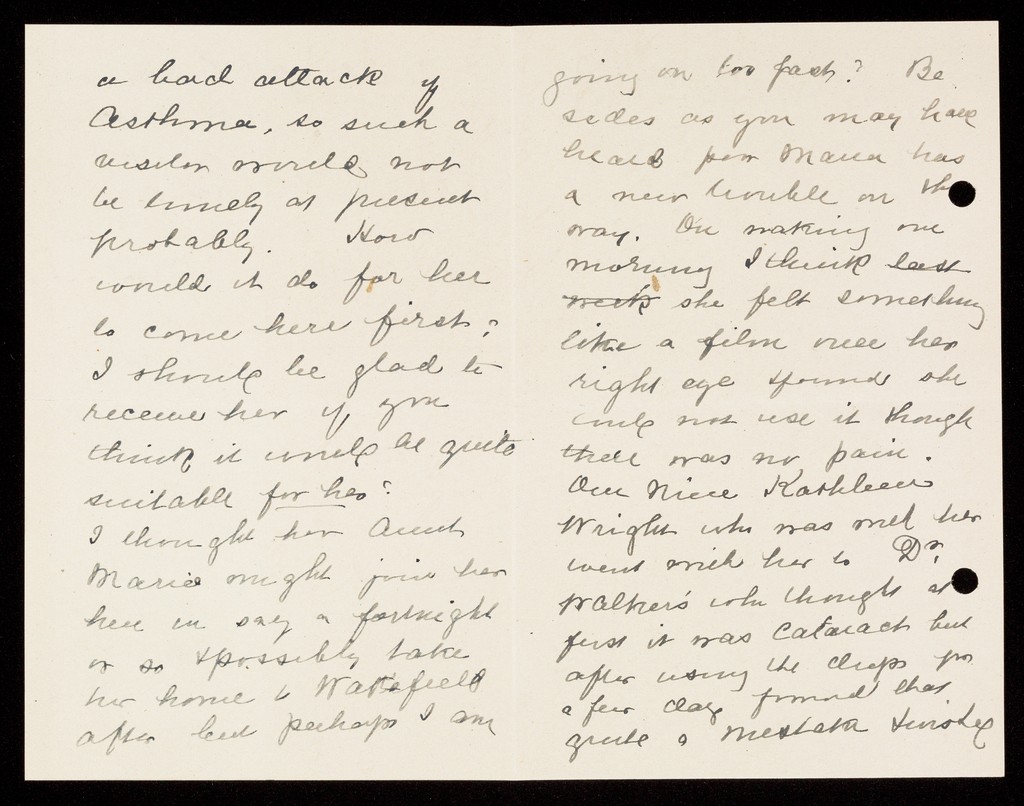 a bad attack of
Asthma, so such a
visitor would not
be timely at present
probably. How
would it do for her
to come here first?
I should be glad to
receive her if you
think it would be quite
suitable for her?
I thought her Aunt
Maria might join her
here in say a fortnight
or so & possibly take
her home to Wakefield
after but perhaps I am
going on too fast? Be
sides as you may have
heard poor Maria has
a new trouble on the
way. On waking one
morning I think last
week she felt something
like a film over her
right eye & found she
could not use it though
there was no pain.
Our Niece Kathleen
Wright who was with her
went with her to Dr.
Walker's who thought at
first it was Cataract but
after using the drops for
a few days found that
quite a mistake &